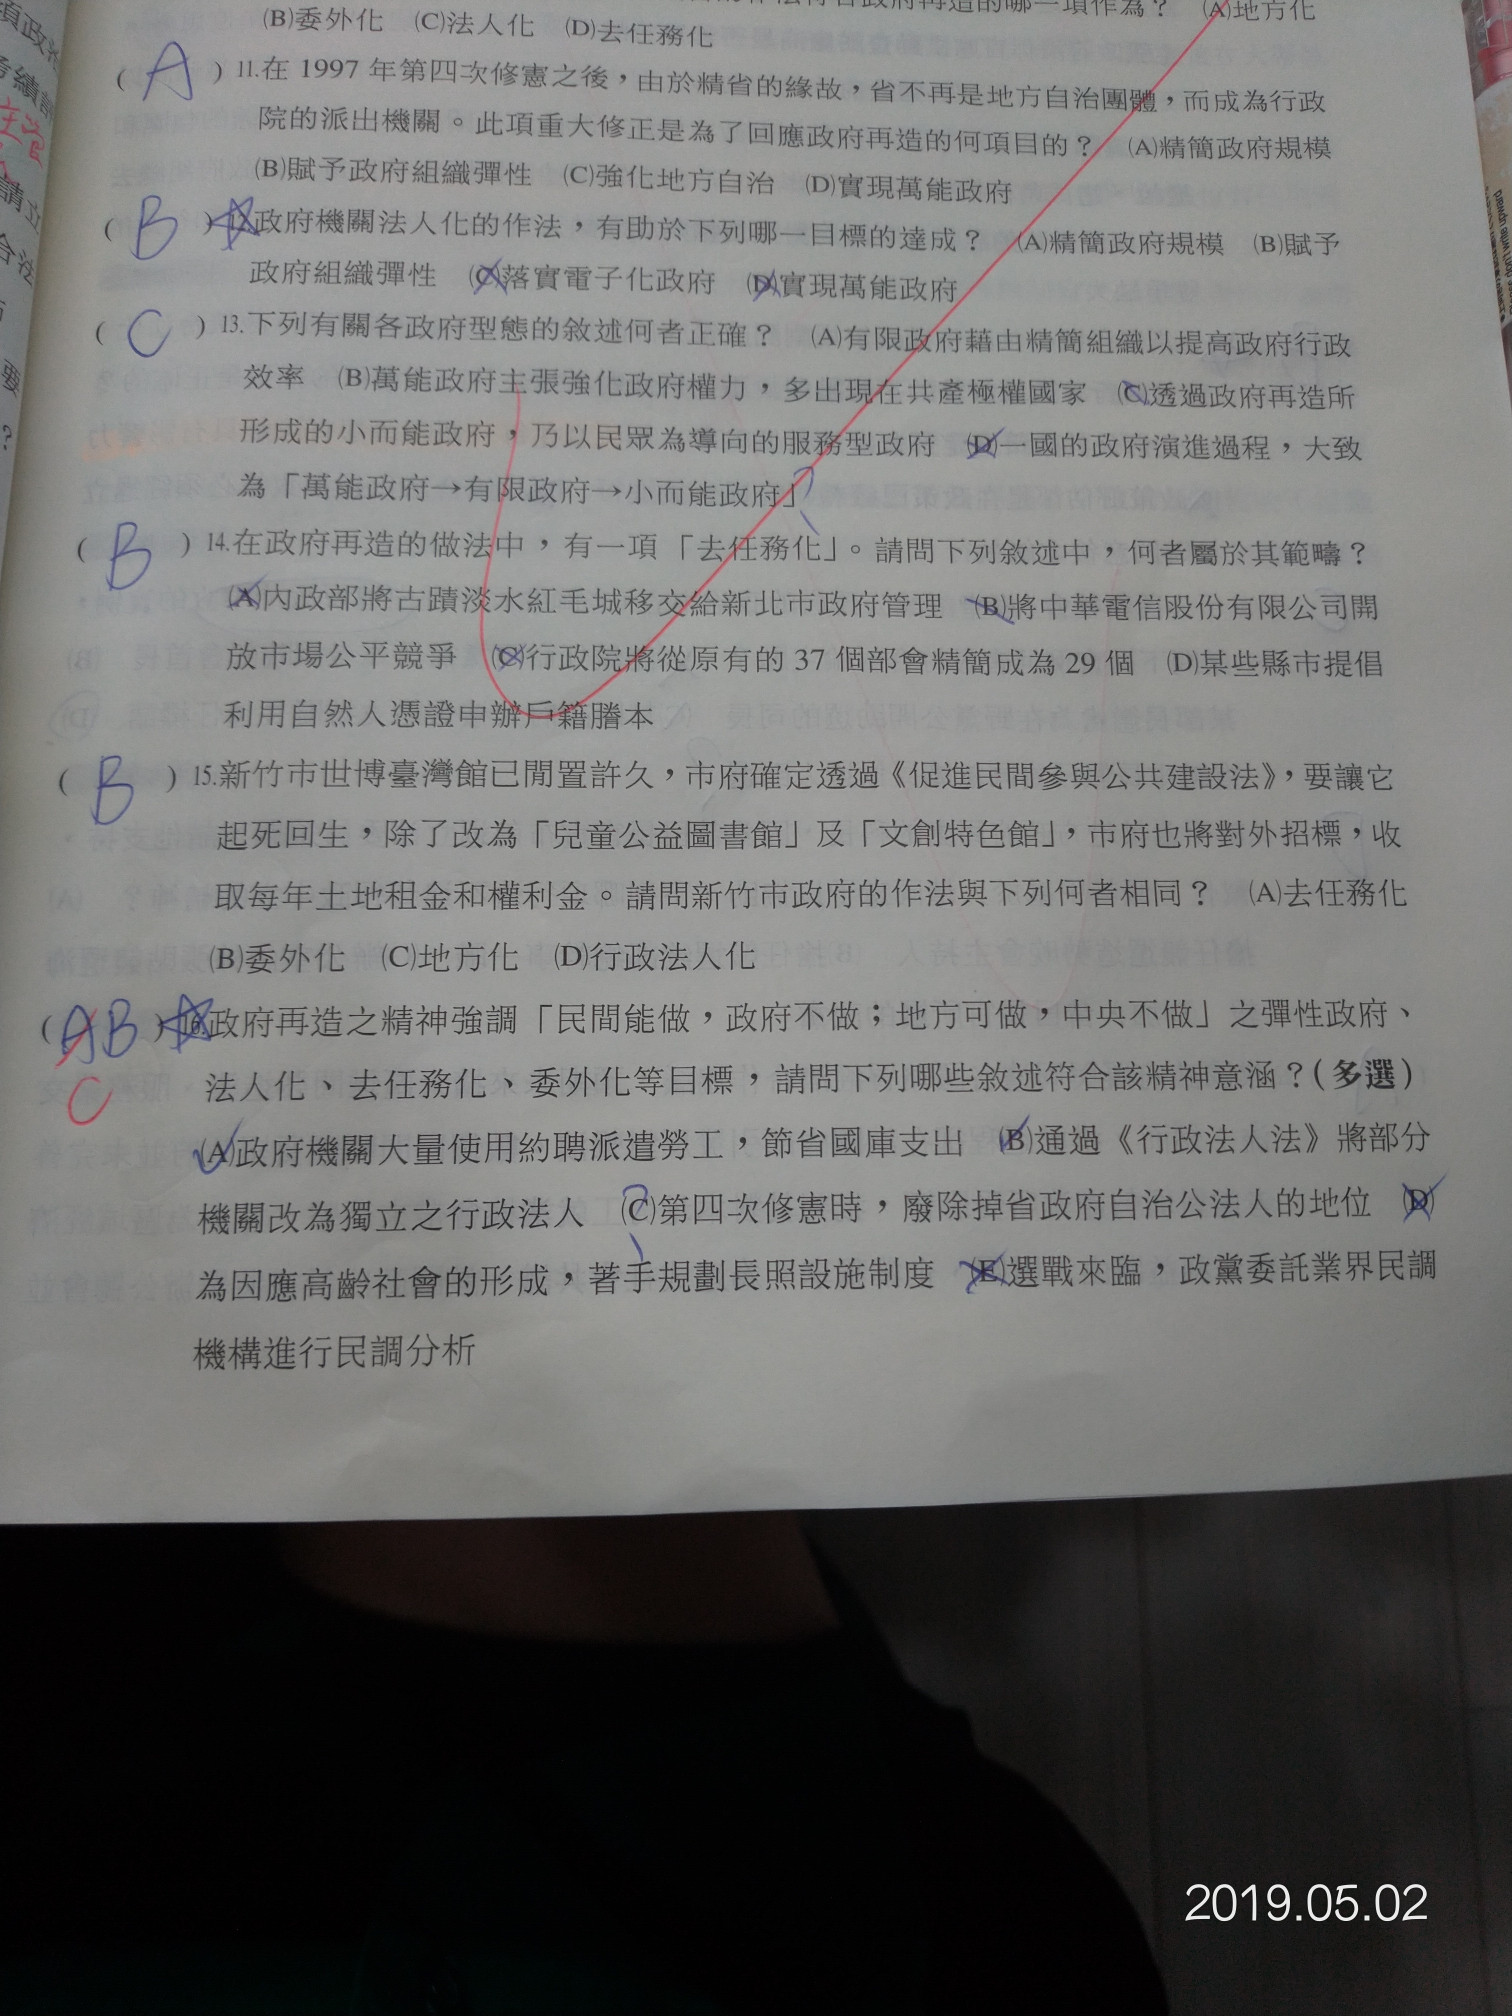 政府再造的哪一項作為？ (A)地方化
(B)委外化 (C)法人化 (D)去任務化
( A ) 11.在 1997 年第四次修憲之後，由於精省的緣故，省不再是地方自治團體，而成為行政
院的派出機關。此項重大修正是為了回應政府再造的何項目的？ (A)精簡政府規模
(B)賦予政府組織彈性 (C)強化地方自治 (D)實現萬能政府
( B ) 12.政府機關法人化的作法，有助於下列哪一目標的達成？ (A)精簡政府規模 (B)賦予
政府組織彈性 (C)落實電子化政府 (D)實現萬能政府
( C ) 13.下列有關各政府型態的敘述何者正確？ (A)有限政府藉由精簡組織以提高政府行政
效率 (B)萬能政府主張強化政府權力，多出現在共產極權國家 (C)透過政府再造所
形成的小而能政府，乃以民眾為導向的服務型政府 (D)一國的政府演進過程，大致
為「萬能政府→有限政府→小而能政府」
( B ) 14.在政府再造的做法中，有一項「去任務化」。請問下列敘述中，何者屬於其範疇？
(A)內政部將古蹟淡水紅毛城移交給新北市政府管理 (B)將中華電信股份有限公司開
放市場公平競爭 (C)行政院將從原有的 37 個部會精簡成為 29 個 (D)某些縣市提倡
利用自然人憑證申辦戶籍謄本
( B ) 15.新竹市世博臺灣館已閒置許久，市府確定透過《促進民間參與公共建設法》，要讓它
起死回生，除了改為「兒童公益圖書館」及「文創特色館」，市府也將對外招標，收
取每年土地租金和權利金。請問新竹市政府的作法與下列何者相同？ (A)去任務化
(B)委外化 (C)地方化 (D)行政法人化
( AB ) 16.政府再造之精神強調「民間能做，政府不做；地方可做，中央不做」之彈性政府、
C 法人化、去任務化、委外化等目標，請問下列哪些敘述符合該精神意涵？(多選)
(A)政府機關大量使用約聘派遣勞工，節省國庫支出 (B)通過《行政法人法》將部分
機關改為獨立之行政法人 (C)第四次修憲時，廢除掉省政府自治公法人的地位 (D)
為因應高齡社會的形成，著手規劃長照設施制度 (E)選戰來臨，政黨委託業界民調
機構進行民調分析
2019.05.02